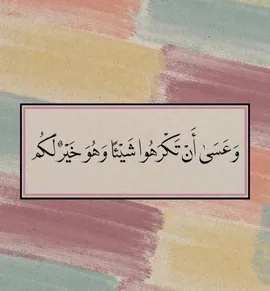 وَعَسَىٰ أَنْ تَكْرَهُوا شَيْئًا وَهُوَ خَيْرٌ لَكُمْ